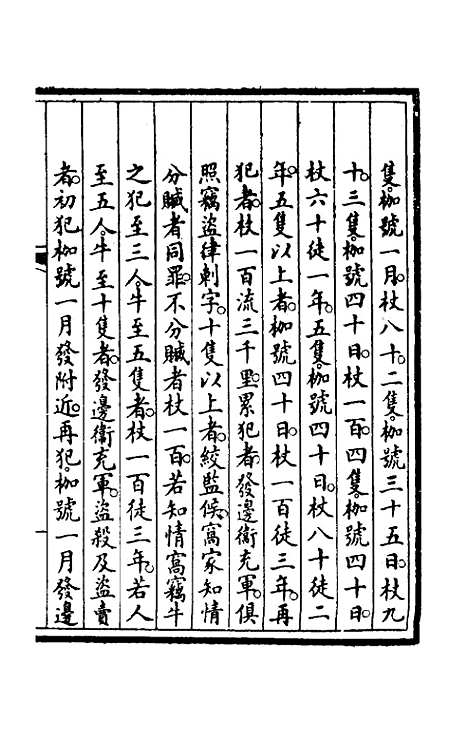 隻。枷號一月。杖八十。二隻。枷號三十五日。杖九
十。三隻。枷號四十日。杖一百。四隻。枷號四十日。
杖六十徒一年。五隻。枷號四十日。杖八十徒二
年。五隻以上者。枷號四十日。杖一百徒三年。再
犯者。杖一百流三千里。累犯者。發邊衞充軍。俱
照竊盜律刺字。十隻以上者。絞監候。窩家知情
分贓者同罪。不分贓者杖一百。若知情窩竊牛
之犯至三人。牛至五隻者。杖一百徒三年。若人
至五人。牛至十隻者。發邊衞充軍。盜殺及盜賣
者。初犯枷號一月發附近。再犯。枷號一月發邊